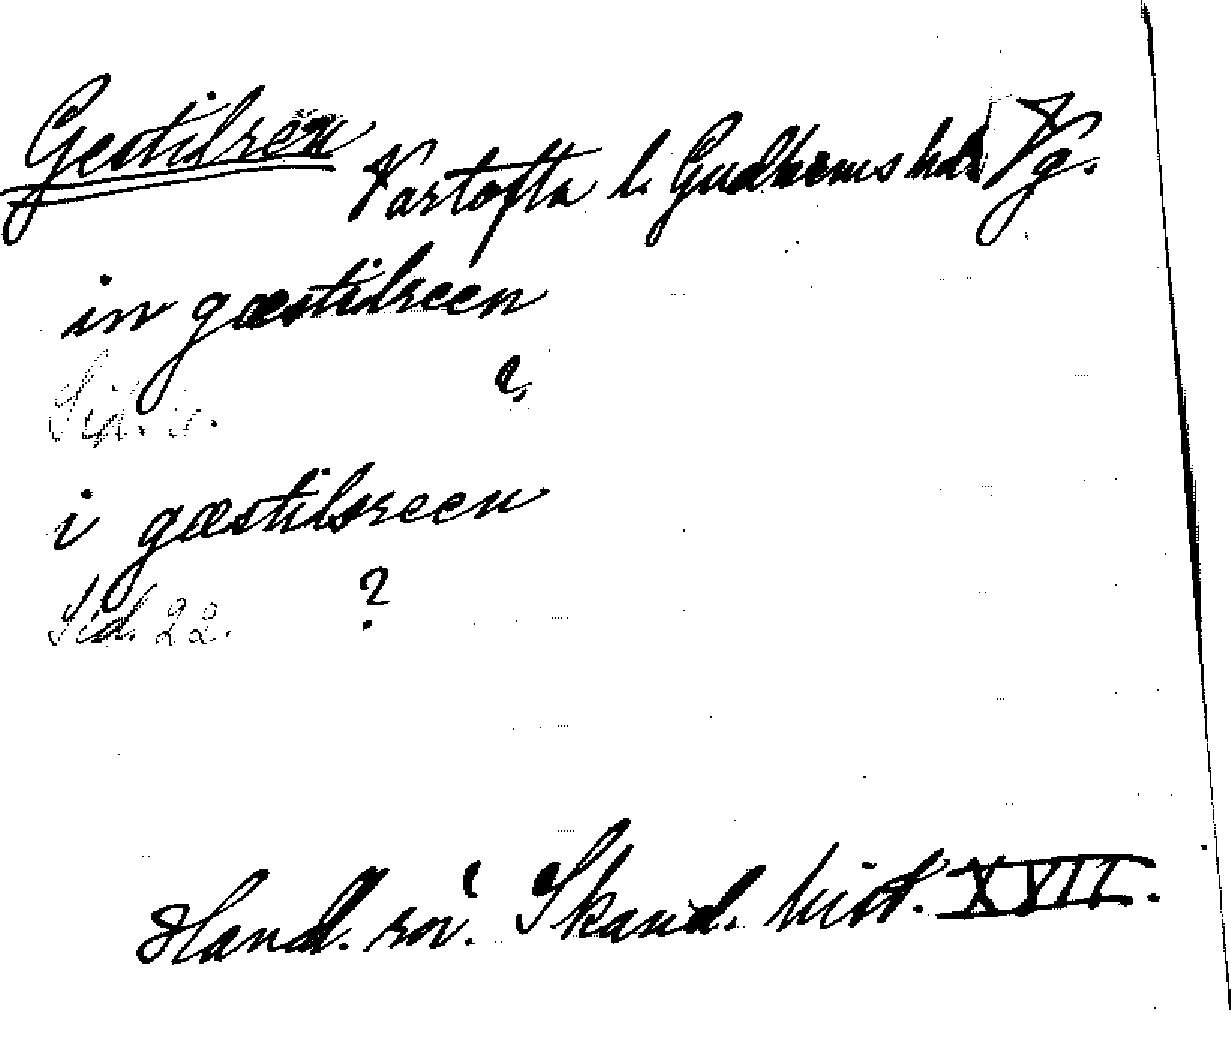 Gestilren Vartofta l. Gudhems hd. Vg.
in gæstilreen
Sid.
?
i gæstilsreen
Sid. 22. ?
Hand. rör. Skand. hist. XVII.